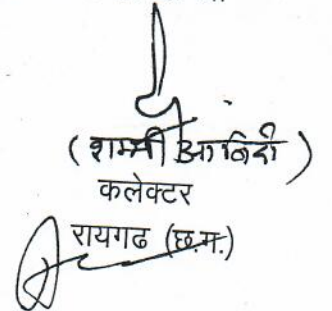 (शम्मी आबिदी)
कलेक्टर
रायगढ (छ.ग.)